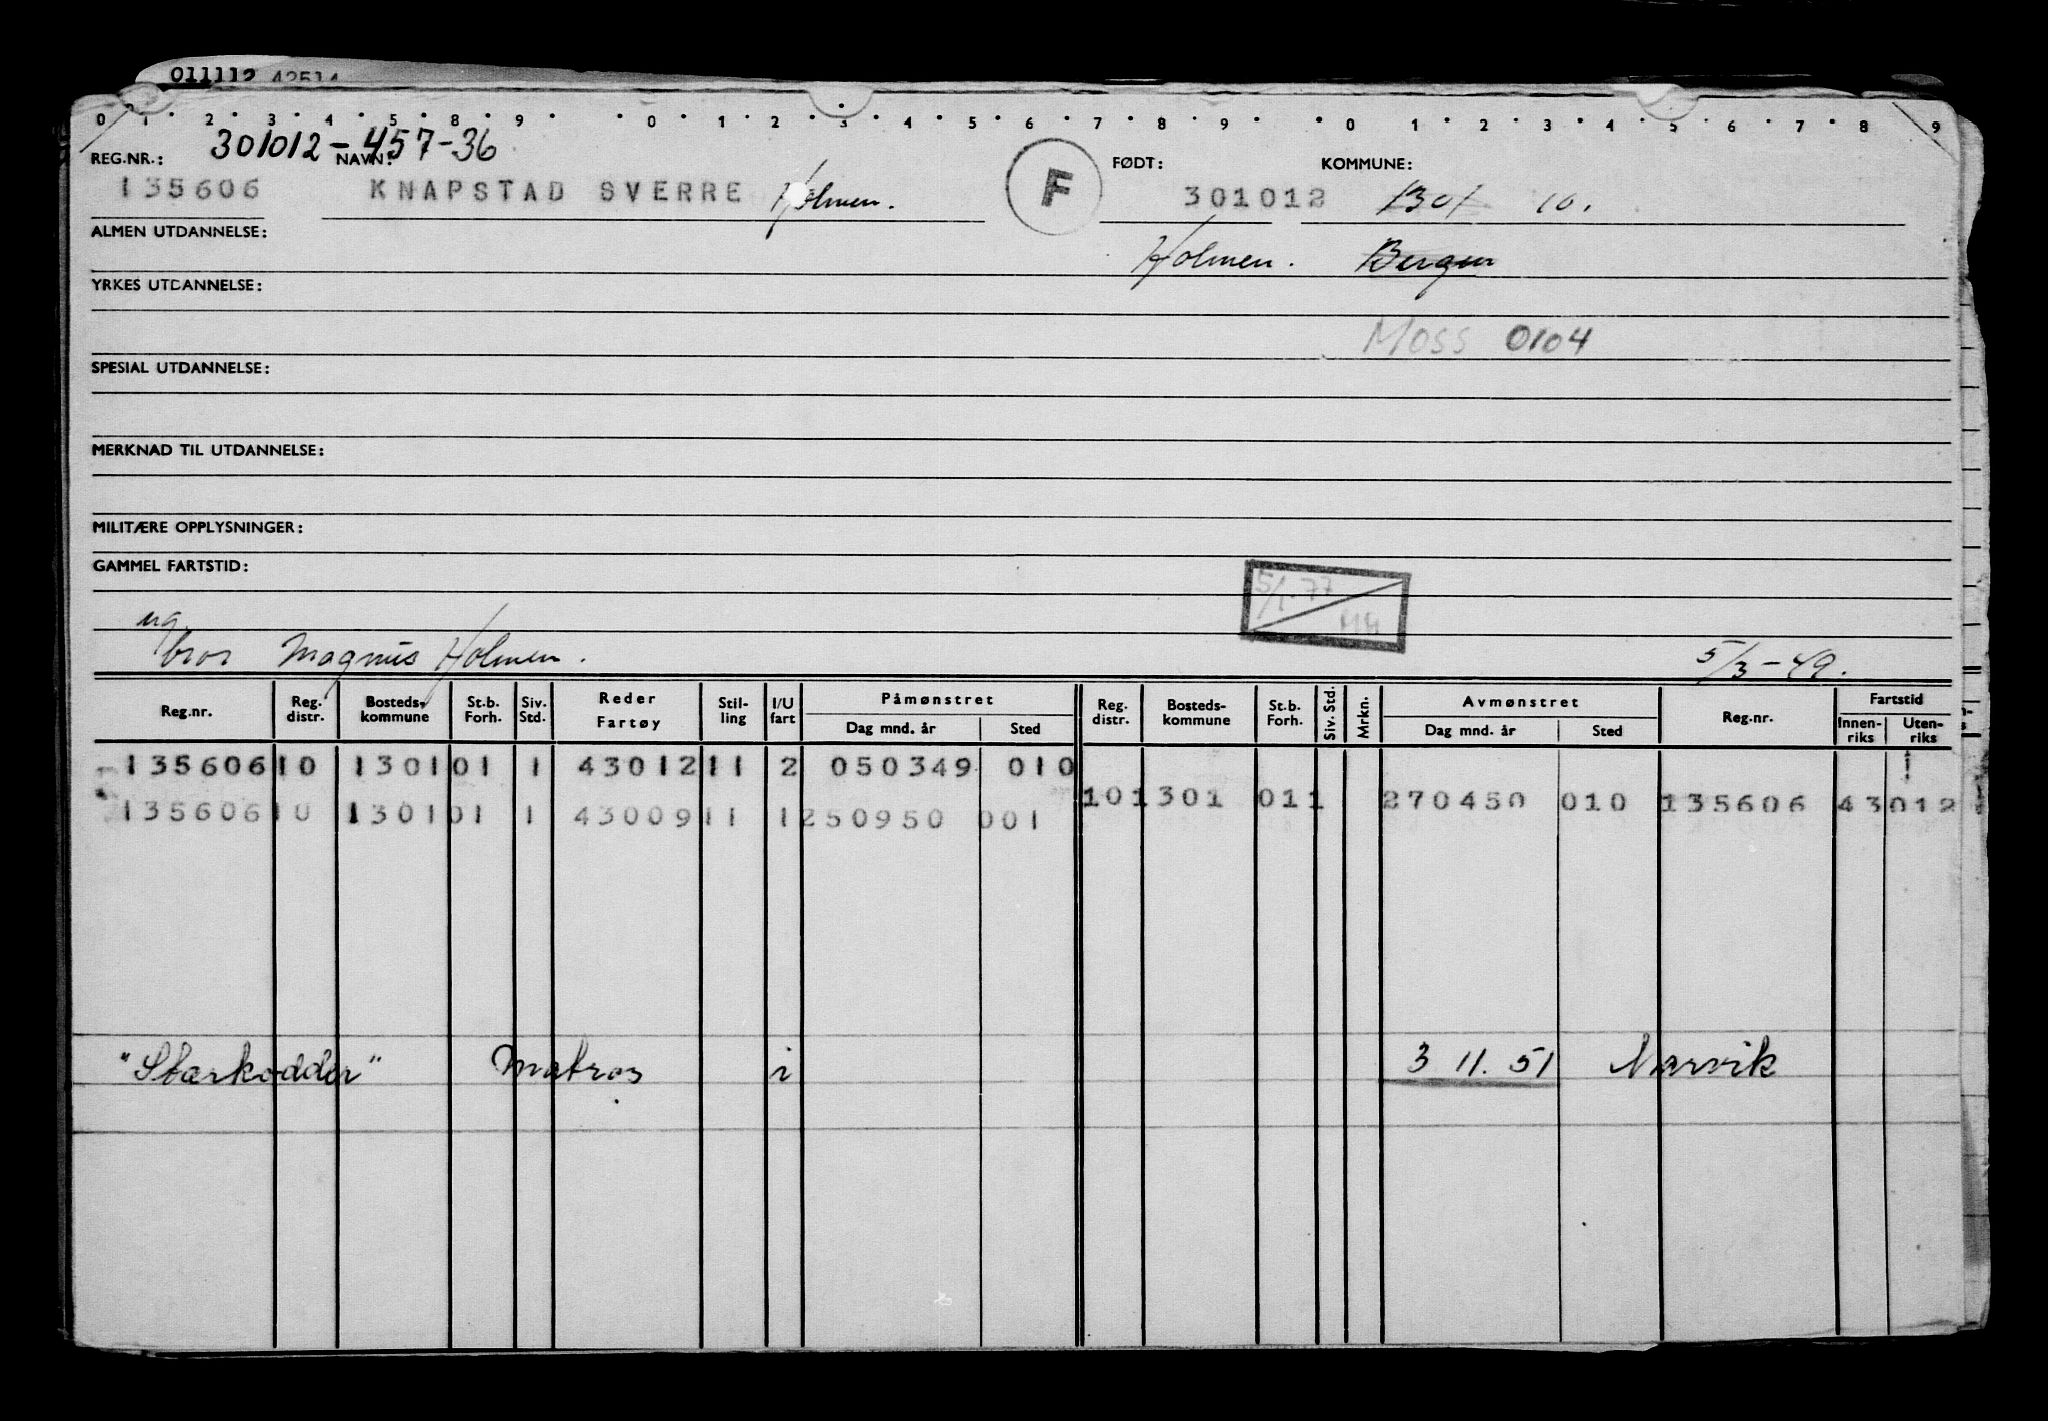 011112 42514
0 1 2 3 4 5 8 9 0 1 2 3 4 5 6 7 8 9 0 1 2 3 4 5 6 7 8 9
301012-457-36
REG.NR.: NAVN: FØDT: KOMMUNE:
135606 KNAPSTAD SVERRE Holmen. F 301012 1301 10.
ALMEN UTDANNELSE:
Holmen. Bergen
YRKES UTDANNELSE:
MOSS 0104
SPESIAL UTDANNELSE:
MERKNAD TIL UTDANNELSE:
MILITÆRE OPPLYSNINGER:
GAMMEL FARTSTID:
5/1-77
ug.
bror Magnus Holmen. 5/3-49.
Reg.nr. Reg. distr. Bosteds-kommune St.b. Forh. Siv. Std. Reder Fartøy Stil-ling I/U fart Påmønstret Dag mnd. år Sted Reg. distr. Bosteds-kommune St.b. Forh. Siv. Std. Mrkn. Avmønstret Dag mnd. år Sted Reg.nr. Fartstid Innen-riks Uten-riks
135606 10 1301 01 1 43012 11 2 050349 010 1
101301 011 270450 010 135606 43012
135606 10 1301 01 1 43009 11 1 250950 001
"Starkodder" Matros i 3 11. 51 Narvik